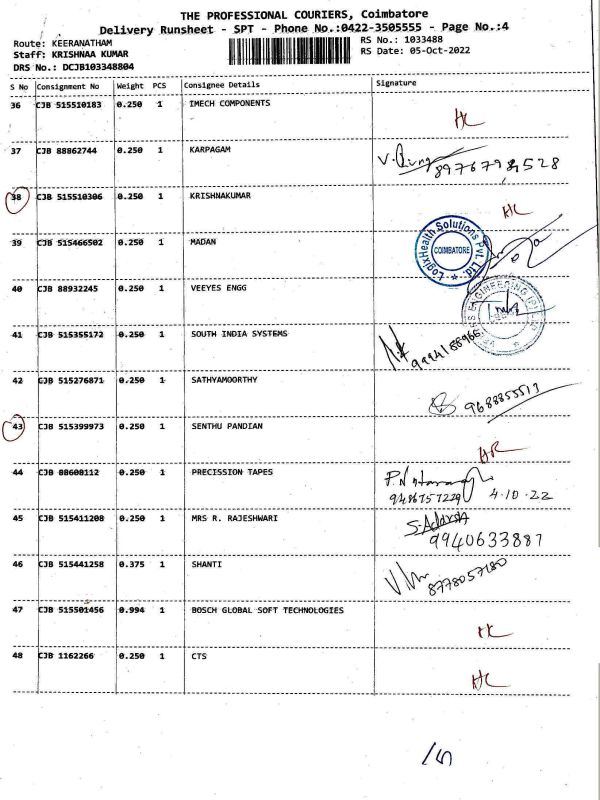 THE PROFESSIONAL COURIERS, Coimbatore
Delivery Runsheet - SPT - Phone No.:0422-3505555 - Page No.:4
Route: KEERANATHAM RS No.: 1033488
Staff: KRISHNAA KUMAR RS Date: 05-Oct-2022
DRS No.: DCJB103348804
S No Consignment No Weight PCS Consignee Details Signature
36 CJB 515510183 0.250 1 IMECH COMPONENTS
37 CJB 88862744 0.250 1 KARPAGAM
38 CJB 515510306 0.250 1 KRISHNAKUMAR
LogixHealth Solutions Pvt. Ltd.
COIMBATORE
39 CJB 515466502 0.250 1 MADAN
40 CJB 88932245 0.250 1 VEEYES ENGG
41 CJB 515355172 0.250 1 SOUTH INDIA SYSTEMS
42 CJB 515276871 0.250 1 SATHYAMOORTHY
9688855513
43 CJB 515399973 0.250 1 SENTHU PANDIAN
44 CJB 88600112 0.250 1 PRECISSION TAPES
9486757229 4-10-22
45 CJB 515411208 0.250 1 MRS R. RAJESHWARI
S. Adarsh
9940633881
46 CJB 515441258 0.375 1 SHANTI
8778057180
47 CJB 515501456 0.994 1 BOSCH GLOBAL SOFT TECHNOLOGIES
48 CJB 1162266 0.250 1 CTS